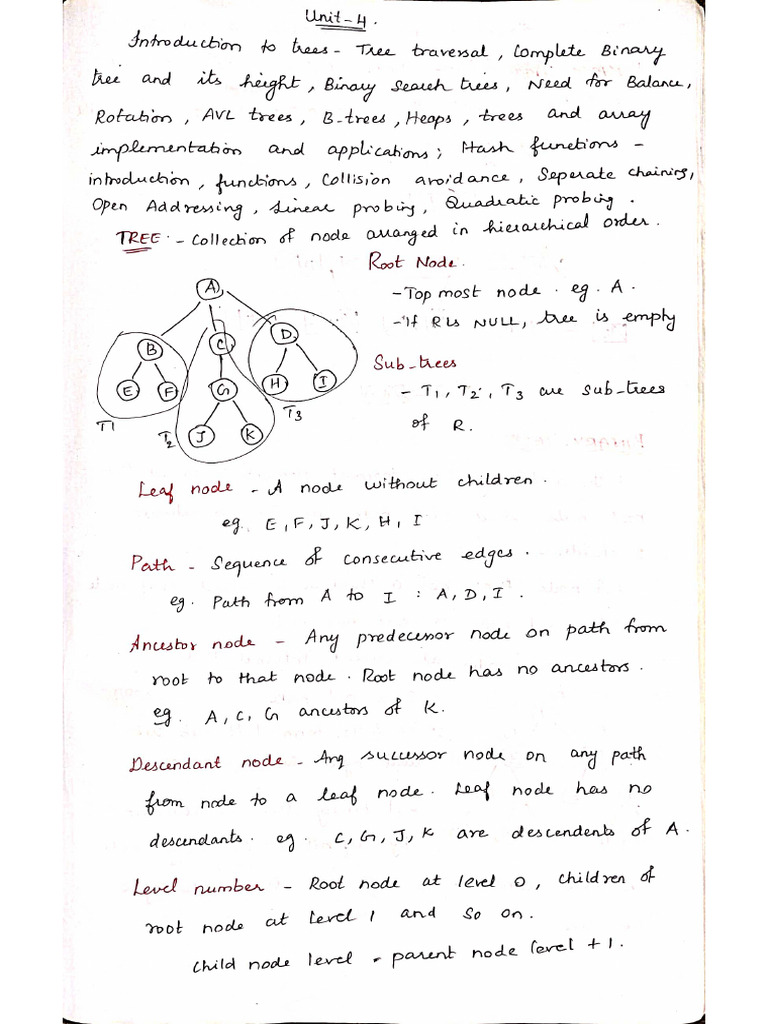 Unit-4.
Introduction to trees - Tree traversal, Complete Binary
tree and its height, Binary search trees, Need for Balance,
Rotation, AVL trees, B-trees, Heaps, trees and array
implementation and applications; Hash functions -
introduction, functions, Collision avoidance, Seperate chaining,
Open Addressing, Linear probing, Quadratic probing.
TREE - Collection of node arranged in hierarchical order.
Root Node.
- Top most node. eg. A.
- If R is NULL, tree is empty
Sub-trees
- T1, T2, T3 are sub-trees
of R.
A
B C D
E F G H I
J K
T1 T2 T3
Leaf node - A node without children.
eg. E, F, J, K, H, I
Path - Sequence of consecutive edges.
eg. Path from A to I : A, D, I.
Ancestor node - Any predecessor node on path from
root to that node. Root node has no ancestors.
eg. A, C, G ancestors of K.
Descendant node - Any successor node on any path
from node to a leaf node. Leaf node has no
descendants. eg. C, G, J, K are descendents of A.
Level number - Root node at level 0, children of
root node at level 1 and so on.
Child node level = parent node level + 1.